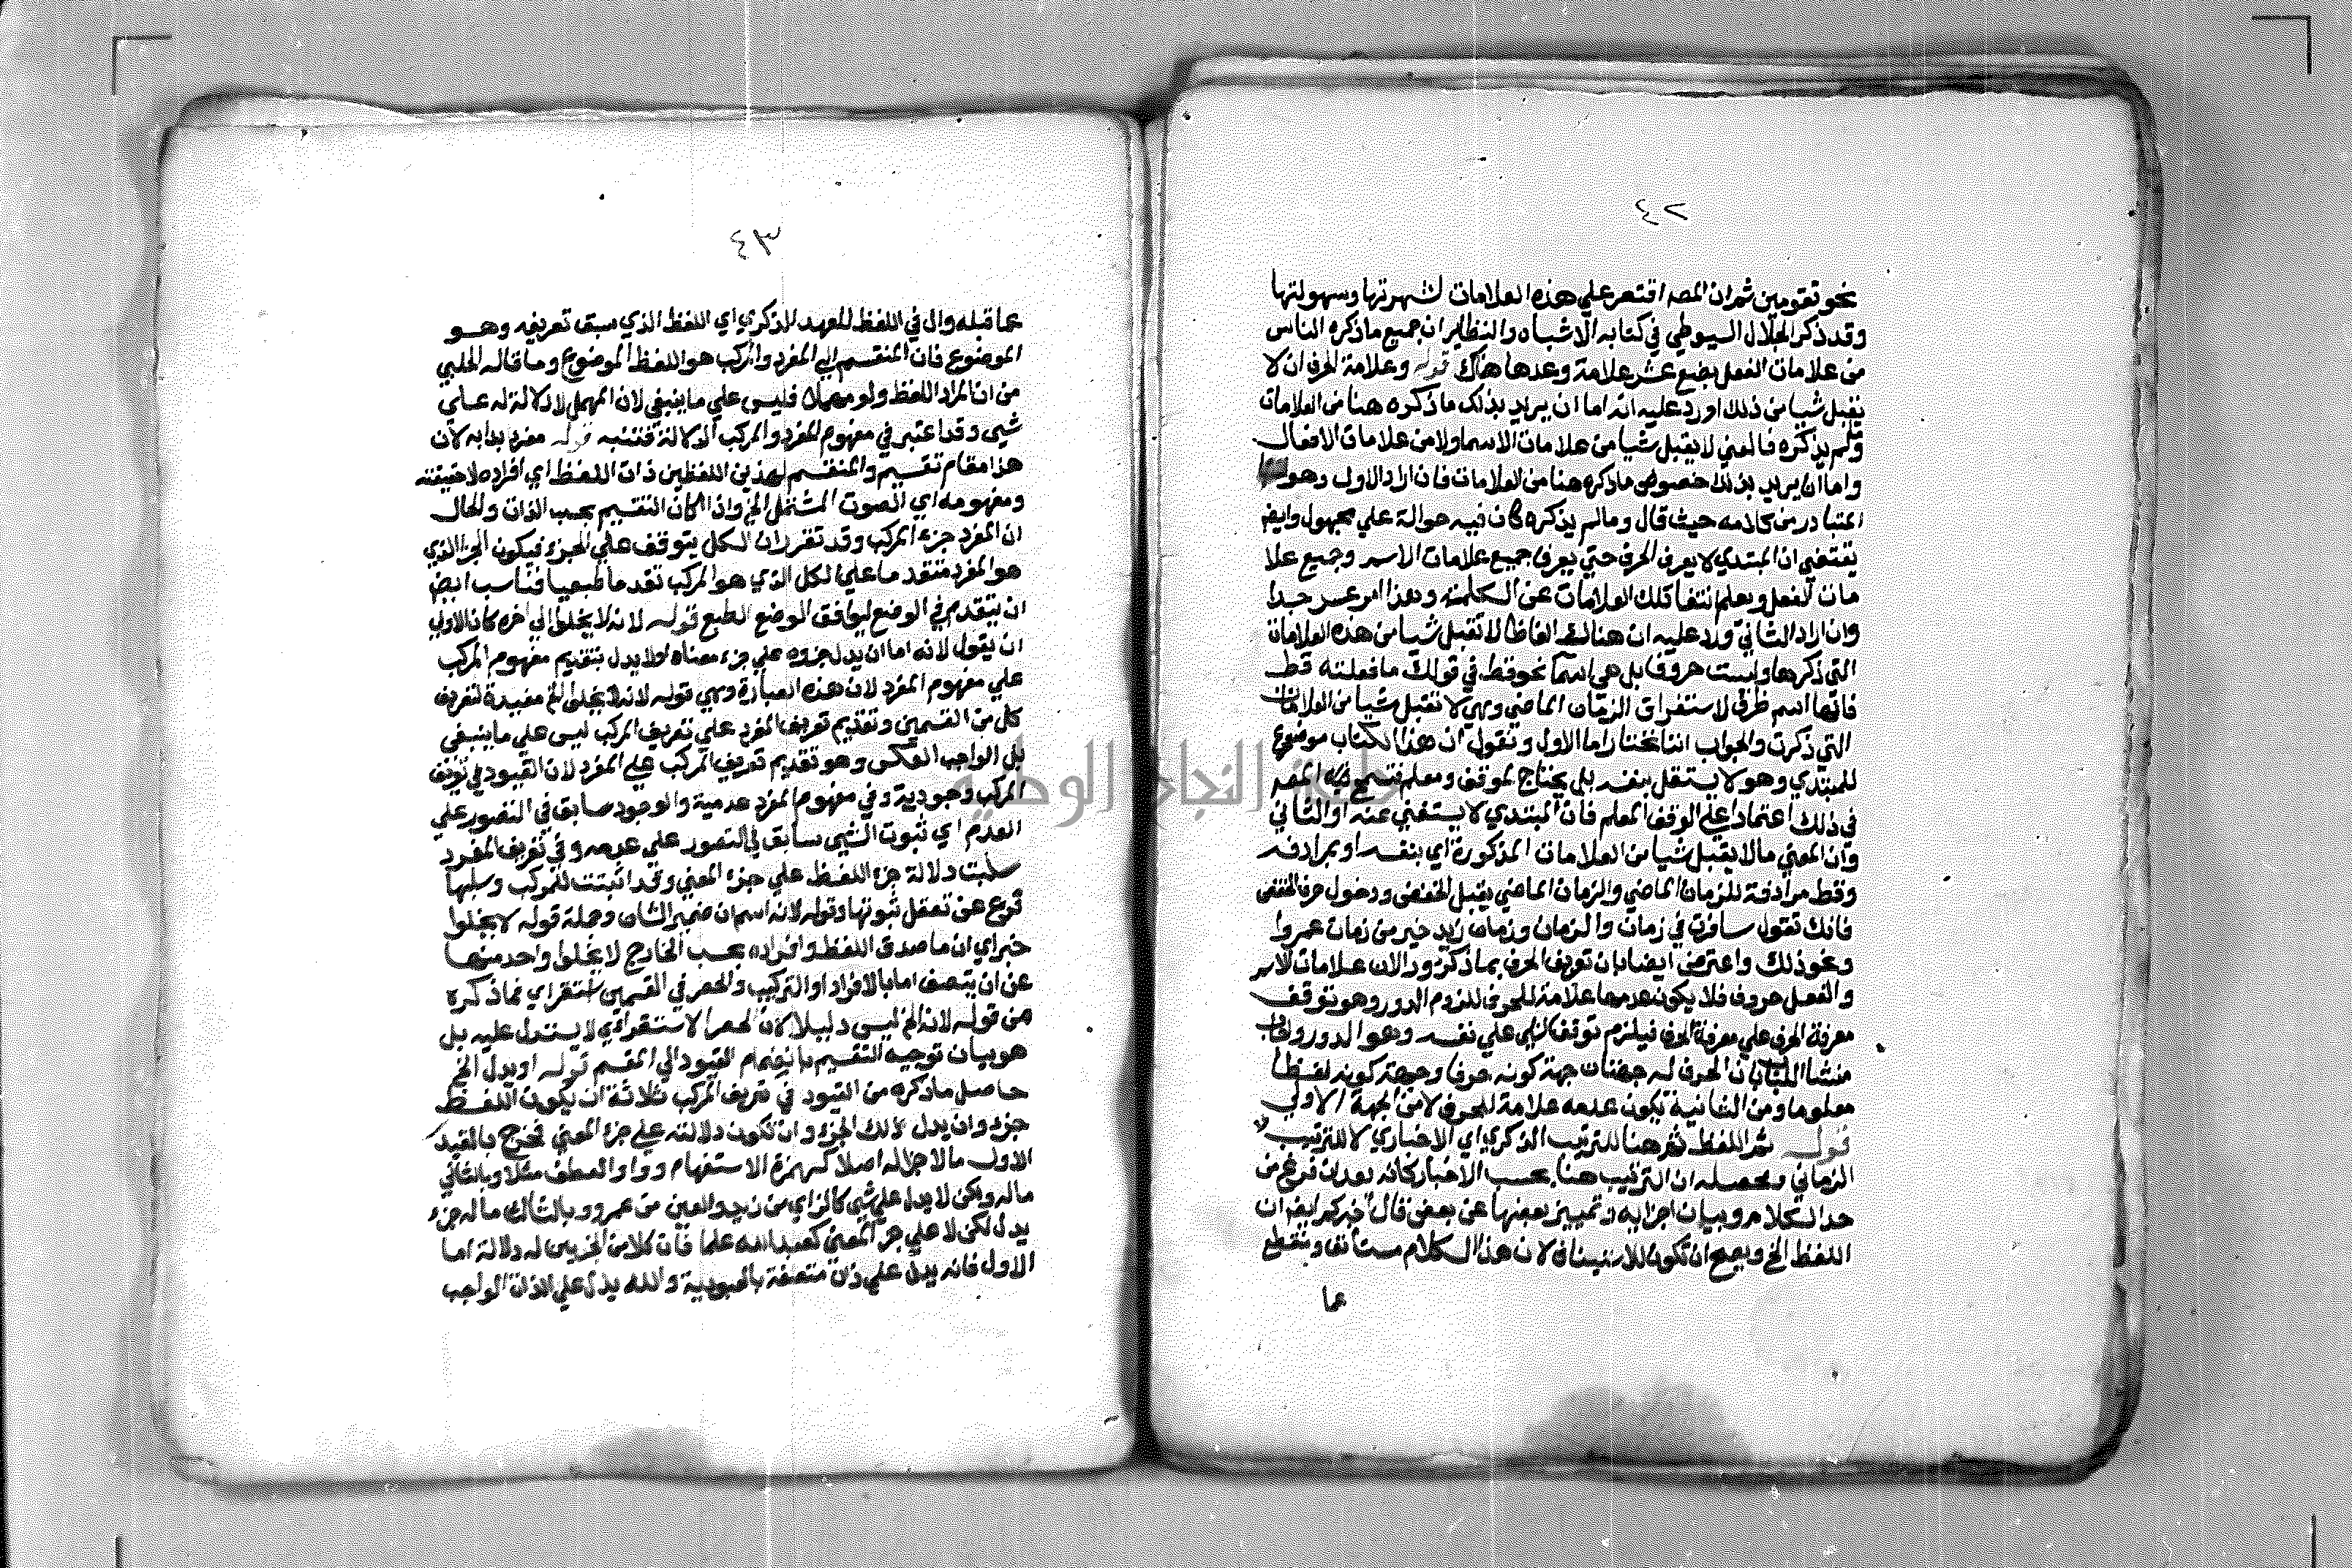 ٤٢
نحو تقومين ثم ان المصه اقتصر علي هذه العلامات لشهرتها وسهولتها
وقد ذكر الجلال السيوطي في كتابه الاشباه والنظاير ان جميع ما ذكره الناس
من علامات الفعل بضع عشر علامة وعدها هناك قوله وعلامة الحرف ان لا
يقبل شيا من ذلك اورد عليه انه اما ان يريد بذلك ما ذكره هنا من العلامات
ولم يذكره فالمعني لا يقبل شيا من علامات الاسما ولا من علامات الافعال
واما ان يريد بذلك خصوص ما ذكره هنا من العلامات فان اراد الاول وهو
المتبادر من كلامه حيث قال وما لم يذكره كان فيه حوالة علي مجهول وايضا
يقتضي ان المبتدي لا يعرف الحرف حتي يعرف جميع علامات الاسم وجميع علا
مات الفعل ويعلم انتفا تلك العلامات عن الكلمة وهذا امر عسر جدا
وان اراد الثاني ورد عليه ان هنالك الفاظا لا تقبل شيا من هذه العلامات
التي ذكرها وليست حروفا بل هي اسما نحو قط في قولك ما فعلته قط
فانها اسم ظرف لاستغراق الزمان الماضي وهي لا تقبل شيا من العلامات
التي ذكرت والجواب اننا نختار اما الاول ونقول ان هذا الكتاب موضوع
للمبتدي وهو لا يستقل بنفسه بل يحتاج لموقف ومعلم فتسمح فيه المصه
في ذلك اعتمادا علي الموقف المعلم فان المبتدي لا يستغني عنه او الثاني
وان المعني ما لا يقبل شيا من العلامات المذكورة اي بنفسه او بمرادفه
وقط مرادفة للزمان الماضي والزمان الماضي يقبل الخفض ودخول حرف الخفض
فانك تقول سافرت في زمان والزمان وزمان زيد خير من زمان عمروا
ونحو ذلك واعترض ايضا بان تعريف الحرف بما ذكر دور لان علامات الاسم
والفعل حروف فلا يكون عدمها علامة للحرف للزوم الدور وهو توقف
معرفة الحرف علي معرفة الحرف فيلزم توقف الشي علي نفسه وهو الدور
منشا بان الحرف له جهتان جهة كونه حرفا وجهة كونه لفظا
معلوما ومن الثانية يكون عدمه علامة للحرف لا من الجهة الاولي
قوله ثم اللفظ ثم هنا للترتيب الذكري اي الاخباري لا للترتيب
الزماني ومحصله ان الترتيب هنا بحسب الاخبار كانه بعد ان فرغ من
حد الكلام وبيان اجزايه وتمييز بعضها عن بعض قال اخبركم ايضا ان
اللفظ الخ ويصح ان تكون للاستيناف لان هذا الكلام مستانف ومنقطع
عما
٤٣
عما قبله وال في اللفظ للعهد الذكري اي اللفظ الذي سبق تعريفه وهو
الموضوع فان المنقسم الي المفرد والمركب هو اللفظ الموضوع وما قاله الحلبي
من ان المراد اللفظ ولو مهملا فليس علي ما ينبغي لان المهمل لا دلالة له علي
شي وقد اعتبر في مفهوم المفرد والمركب الدلالة فتنبه قوله مفرد بدا به لان
هذا مقام تقسيم والمنقسم لهذين اللفظين ذات اللفظ اي افراده لا حقيقته
ومفهومه اي الصوت المشتمل الخ واذا كان التقسيم بحسب الذات والحال
ان المفرد جزء المركب وقد تقرر ان الكل يتوقف علي الجزء فيكون الجزا الذي
هو المفرد متقدما علي الكل الذي هو المركب تقدما طبعيا فناسب ايضا
ان يتقدم في الوضع ليوافق الوضع الطبع قوله لانه لا يخلوا الي اخره كان الاولي
ان يقول لانه اما ان يدل جزوه علي جزء معناه او لا يدل بتقديم مفهوم المركب
علي مفهوم المفرد لان هذه العبارة وهي قوله لانه لا يخلوا الخ مفيدة لتعريف
كل من القسمين وتقديم تعريف المفرد علي تعريف المركب ليس علي ما ينبغي
بل الواجب العكس وهو تقديم تعريف المركب علي المفرد لان القيود في تعريف
المركب وجودية وفي مفهوم المفرد عدمية والوجود سابق في التصور علي
العدم اي ثبوت الشي سابق في التصور علي عدمه وفي تعريف المفرد
سلبت دلالة جزء اللفظ علي جزء المعني وقد اثبتت للمركب وسلبها
فرع عن تعقل ثبوتها وقوله لانه اسم ان ضمير الشان وجملة قوله لا يخلوا
خبر اي ان ما صدق اللفظ وافراده بحسب الخارج لا يخلوا واحد منها
عن ان يتصف اما بالافراد او التركيب والحصر في القسمين استقراي فما ذكره
من قوله لانه الخ ليس دليلا لان الحصر الاستقراءي لا يستدل عليه بل
هو بيان توجيه التقسيم بانضمام القيود الي المقسم قوله او يدل الخ
حاصل ما ذكره من القيود في تعريف المركب ثلاثة ان يكون اللفظ
جزء وان يدل ذلك الجزء وان تكون دلالته علي جزء المعني فخرج بالقيد
الاول ما لا جزا له اصلا كهمزة الاستفهام وواو العطف مثلا وبالثاني
ما له ولكن لا يدل علي شي كالزاي من زيد والعين من عمرو وبالثالث ما له جزء
يدل لكن لا علي جزء المعني كعبد الله علما فان كلا من الجزيين له دلالة اما
الاول فانه يدل علي ذات متصفة بالعبودية والله يدل علي الذات الواجب